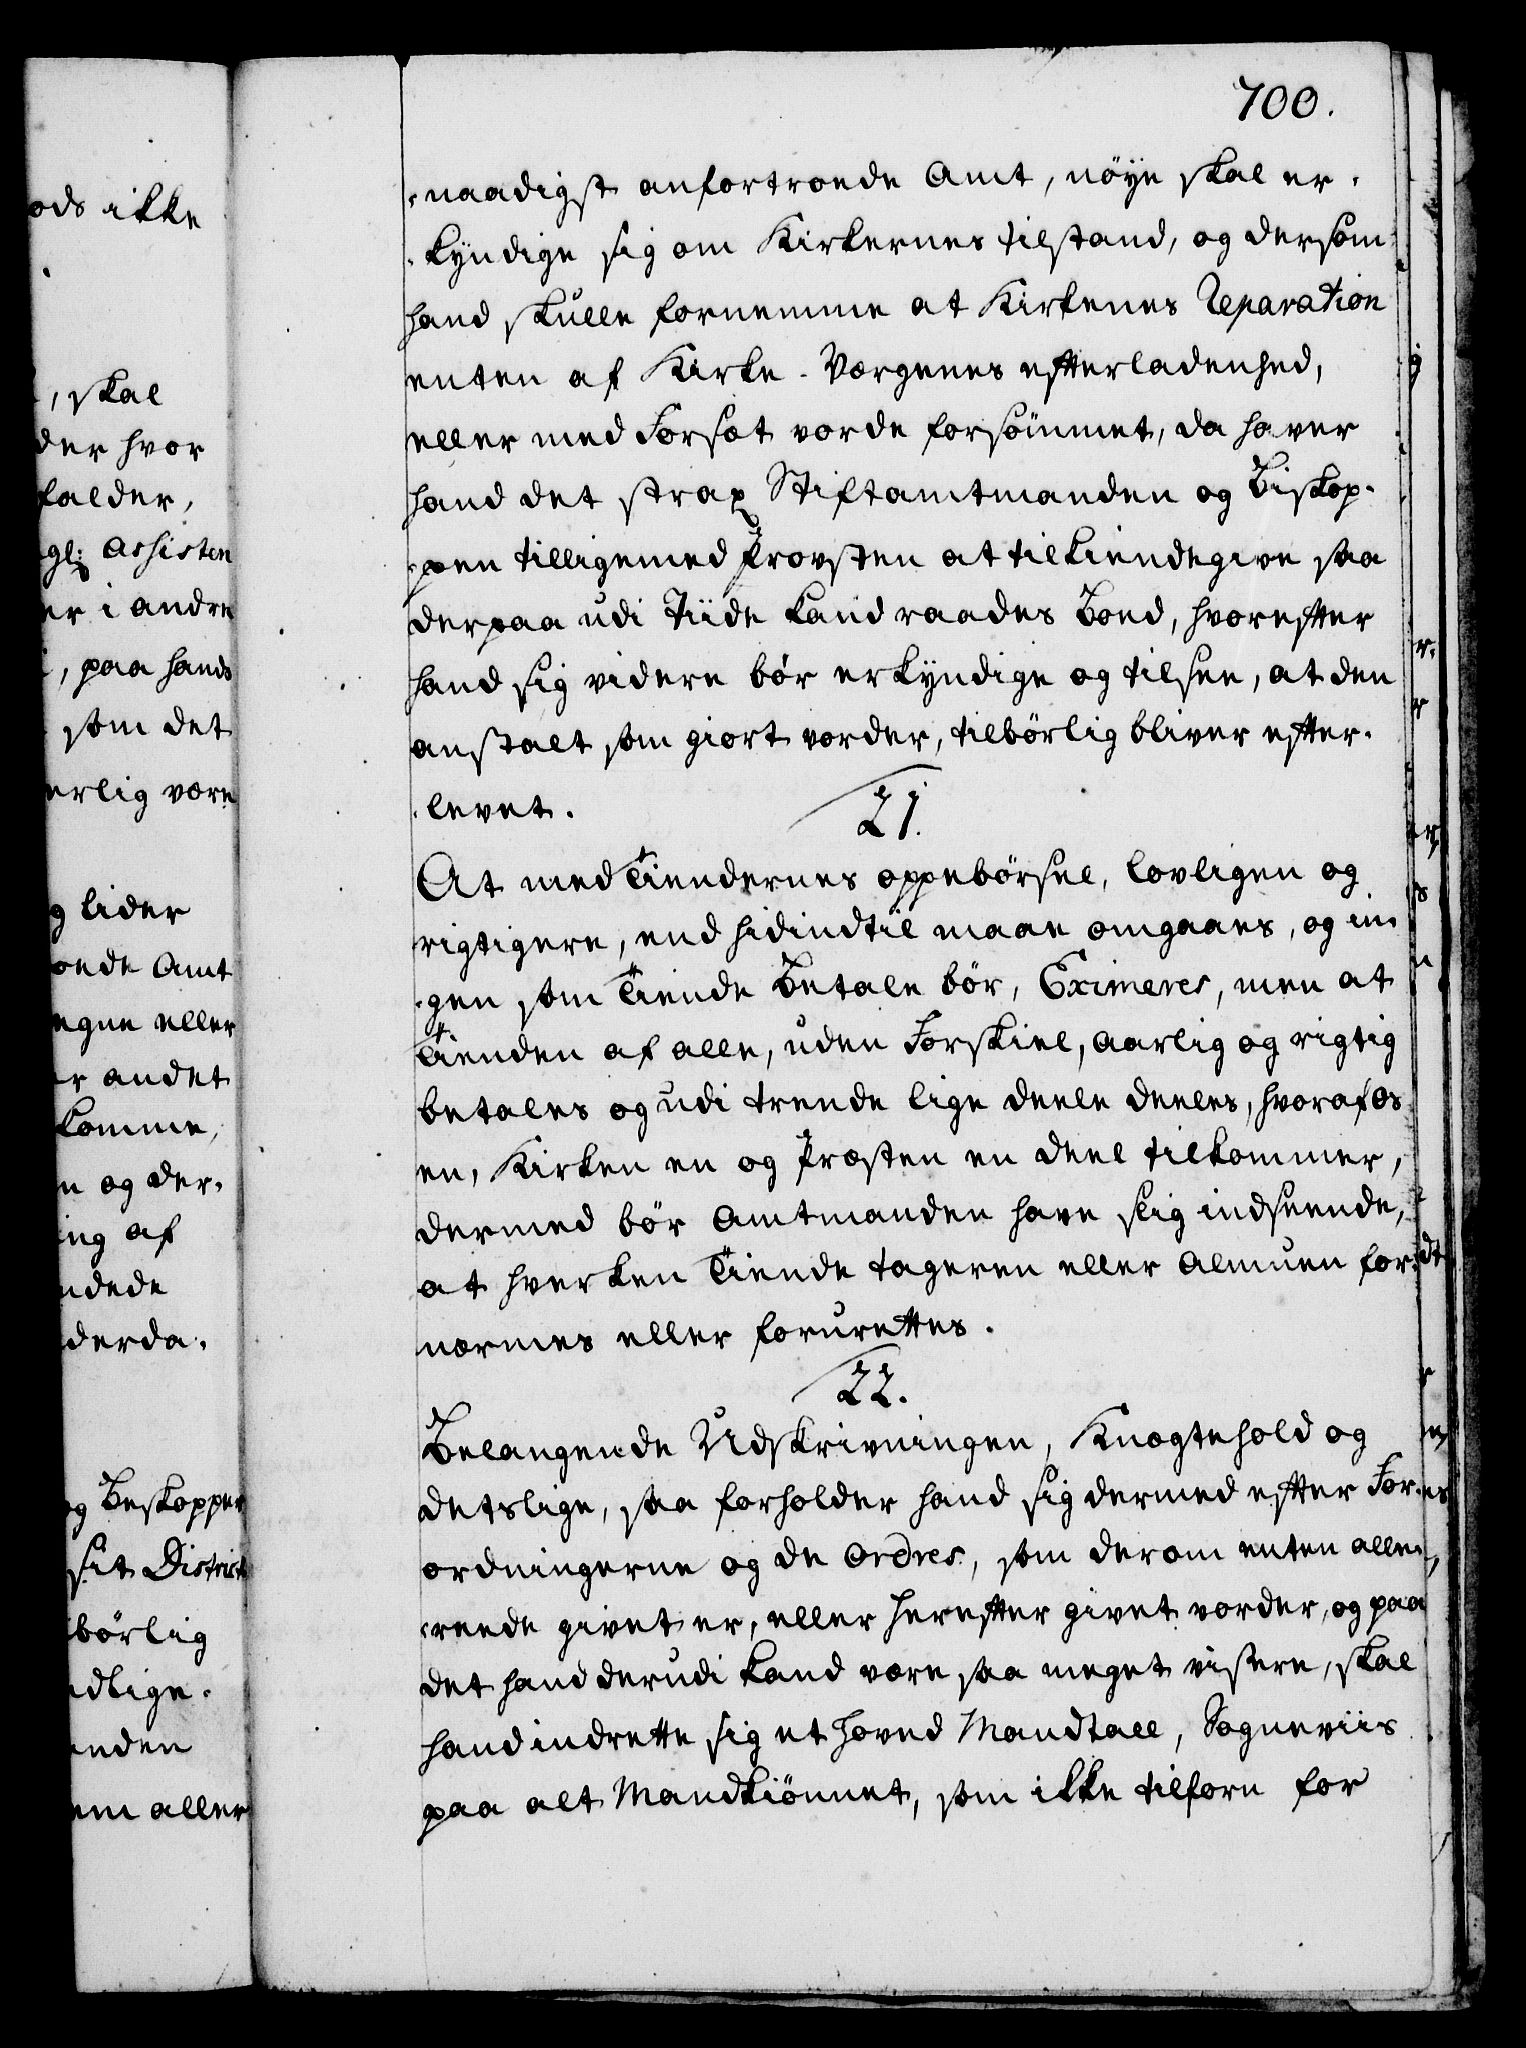 700.
-naadigst anfortroede Amt, nöye skal er-
-kyndige sig om Kirkernes tilstand, og dersom
hand skulle fornemme at Kirkenes Reparation
enten af Kirke-Værgenes efterladenhed,
eller med Forsæt vorde forsömmet, da haver
hand det strax Stiftamtmanden og Biskop-
-pen tilligemed Provsten at tilkiendegive saa
derpaa udi tiide kand raades Boed, hvorefter
hand sig videre bör erkyndige og tilsee, at den
anstalt som giort vorder, tilbörlig bliver efter-
-levet.
21.
At med Tiendernes oppebörsel, lovligen og
rigtigere, end hidindtil maae omgaaes, og in-
-gen som Tiende Betale bör, Eximeres, men at
Tienden af alle, uden Forskiel, aarlig og rigtig
betales og udi trende lige deele deeles, hvoraf Os
en, Kirken en og Præsten en deel tilkommer,
dermed bör Amtmanden have slig indseende,
at hverken Tiende tageren eller Almuen for-
nærmes eller forurettes.
22.
Belangende Udskrivningen, Knægtehold og
detslige, saa forholder hand sig dermed efter For-
ordningerne og de Ordres, som derom enten alle-
-reede givet er, eller herefter givet vorder, og paa
det hand derudi kand være saa meget vissere, skal
hand indrette sig et hoved Mandtall, Sogneviis
paa alt Mandkiönnet, som ikke tilforn for
ods ikke
, skal
der hvor
falder,
gl: Assisten
er i andre
, paa hands
som det
erlig være
g lider
oede Amt
egne eller
er andet
komme,
n og der-
ing af
ndede
derda-
og Beskopper
sit District
börlig
dlige-
anden
em aller